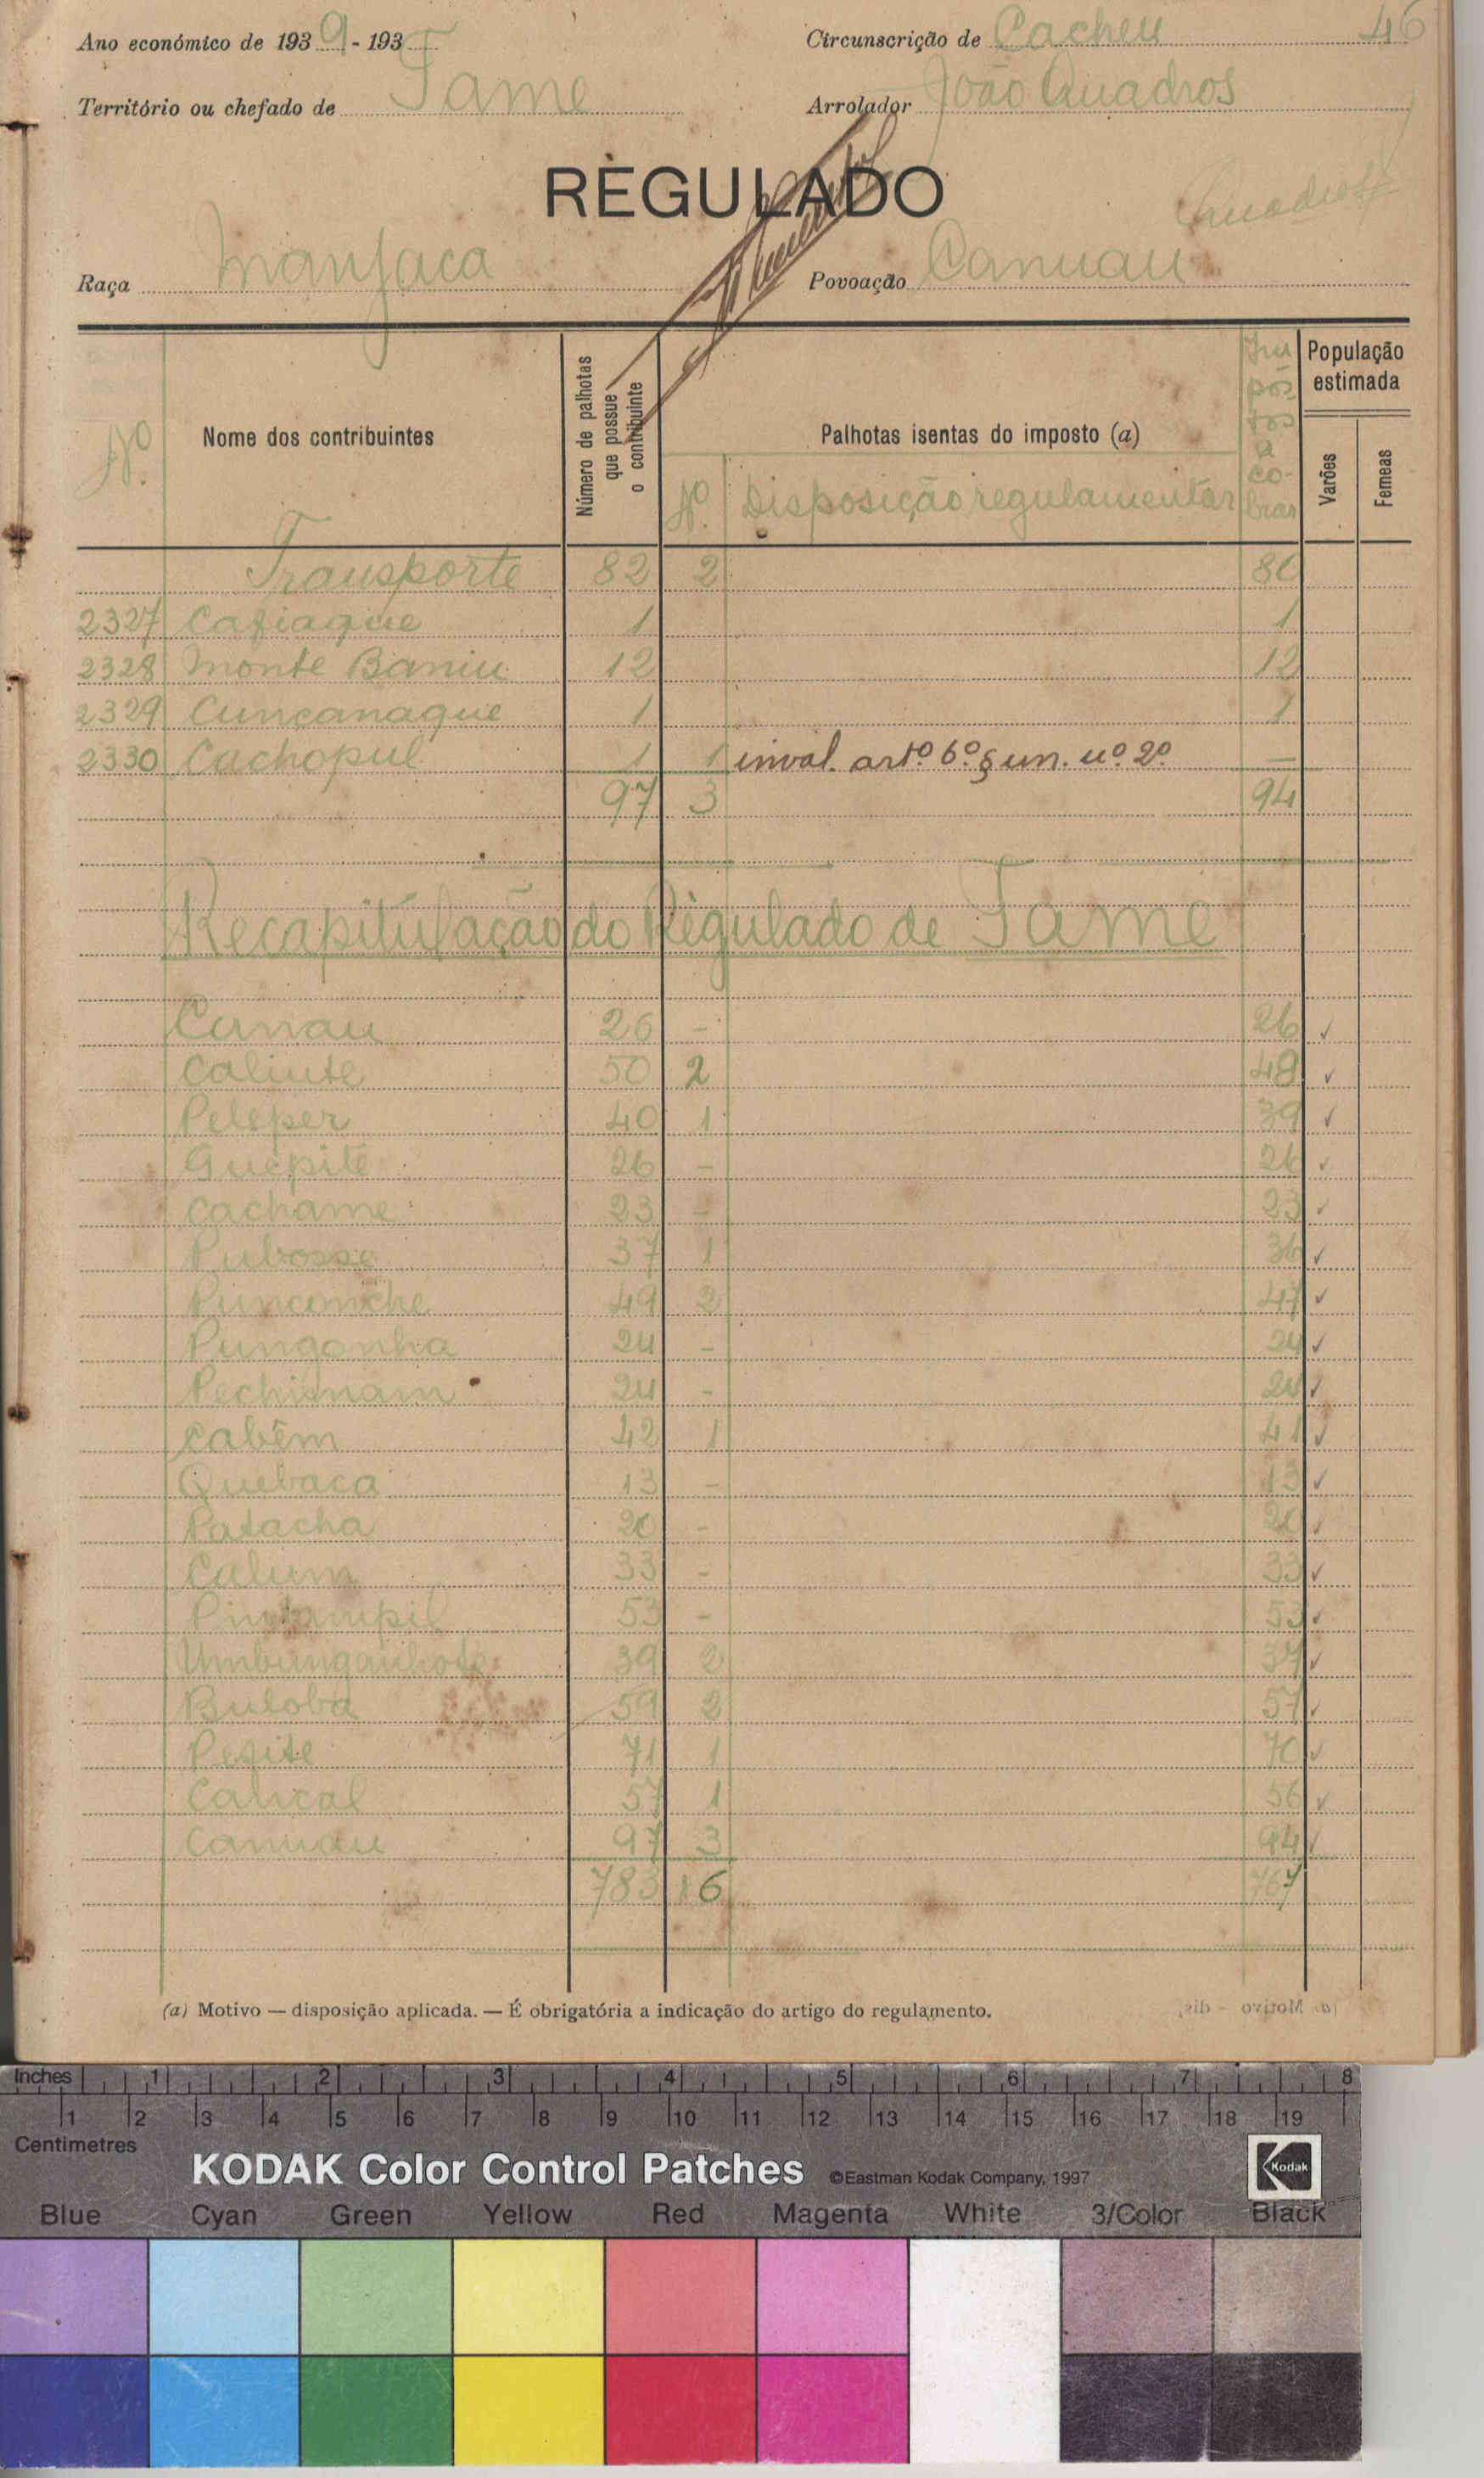 Ano económico de 1939-193 Circunscrição de Cacheu 46
Território ou chefado de Tame Arrolador João Quadros
REGULADO
Quadros
Raça Manjaca Povoação Canuau
Nº Nome dos contribuintes Número de palhotas que possue o contribuinte Palhotas isentas do imposto (a) Nº Disposição regulamentar Impostos a cobrar População estimada Varões Femeas
Transporte 82 2 80
2327 Cafiaque 1 1
2328 Monte Baniu 12 12
2329 Cunçanaque 1 1
2330 Cachopul 1 1 inval. artº 6º § un. nº 2º —
97 3 94
Recapitulação do Règulado de Tame
Canau 26 - 26 ✓
Caliute 50 2 48 ✓
Peleper 40 1 39 ✓
Guepite 26 - 26 ✓
Cachame 23 - 23 ✓
Pubosse 37 1 36 ✓
Punconche 49 2 47 ✓
Pungonha 24 - 24 ✓
Pechimam 24 - 24 ✓
Cabêm 42 1 41 ✓
Quebaca 13 - 13 ✓
Patacha 20 - 20 ✓
Calum 33 - 33 ✓
53 - 53 ✓
39 2 37 ✓
Buloba 59 2 57 ✓
Pefite 71 1 70 ✓
57 1 56 ✓
Canuau 97 3 94 ✓
783 16 767
(a) Motivo — disposição aplicada. — É obrigatória a indicação do artigo do regulamento.
Inches 1 2 3 4 5 6 7 8
1 2 3 4 5 6 7 8 9 10 11 12 13 14 15 16 17 18 19
Centimetres
KODAK Color Control Patches ©Eastman Kodak Company, 1997 Kodak
Blue Cyan Green Yellow Red Magenta White 3/Color Black